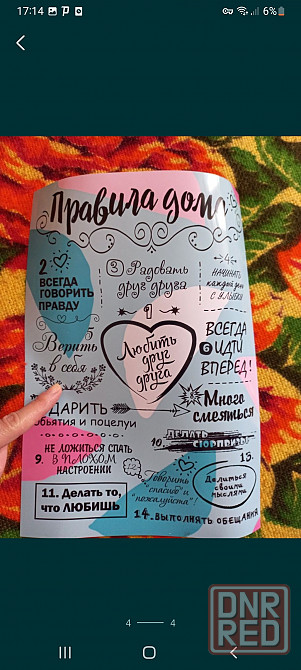 17:14
6%
Правила дома
2 ВСЕГДА ГОВОРИТЬ ПРАВДУ
3 Радовать друг друга
4 НАЧИНАТЬ каждый день С УЛЫБКИ
1
Любить
друг
друга
Верить
в себя
ВСЕГДА
6 ИДТИ
ВПЕРЕД!
ДАРИТЬ
объятия и поцелуи
8. Много
смеяться
9. НЕ ЛОЖИТЬСЯ СПАТЬ
В ПЛОХОМ
НАСТРОЕНИИ
10. ДЕЛАТЬ
СЮРПРИЗЫ
11. Делать то,
что ЛЮБИШЬ
Говорить
"спасибо" и
"пожалуйста"!
13.
Делиться
своими
мыслями
14. ВЫПОЛНЯТЬ ОБЕЩАНИЯ
4 — 4
DNR
RED